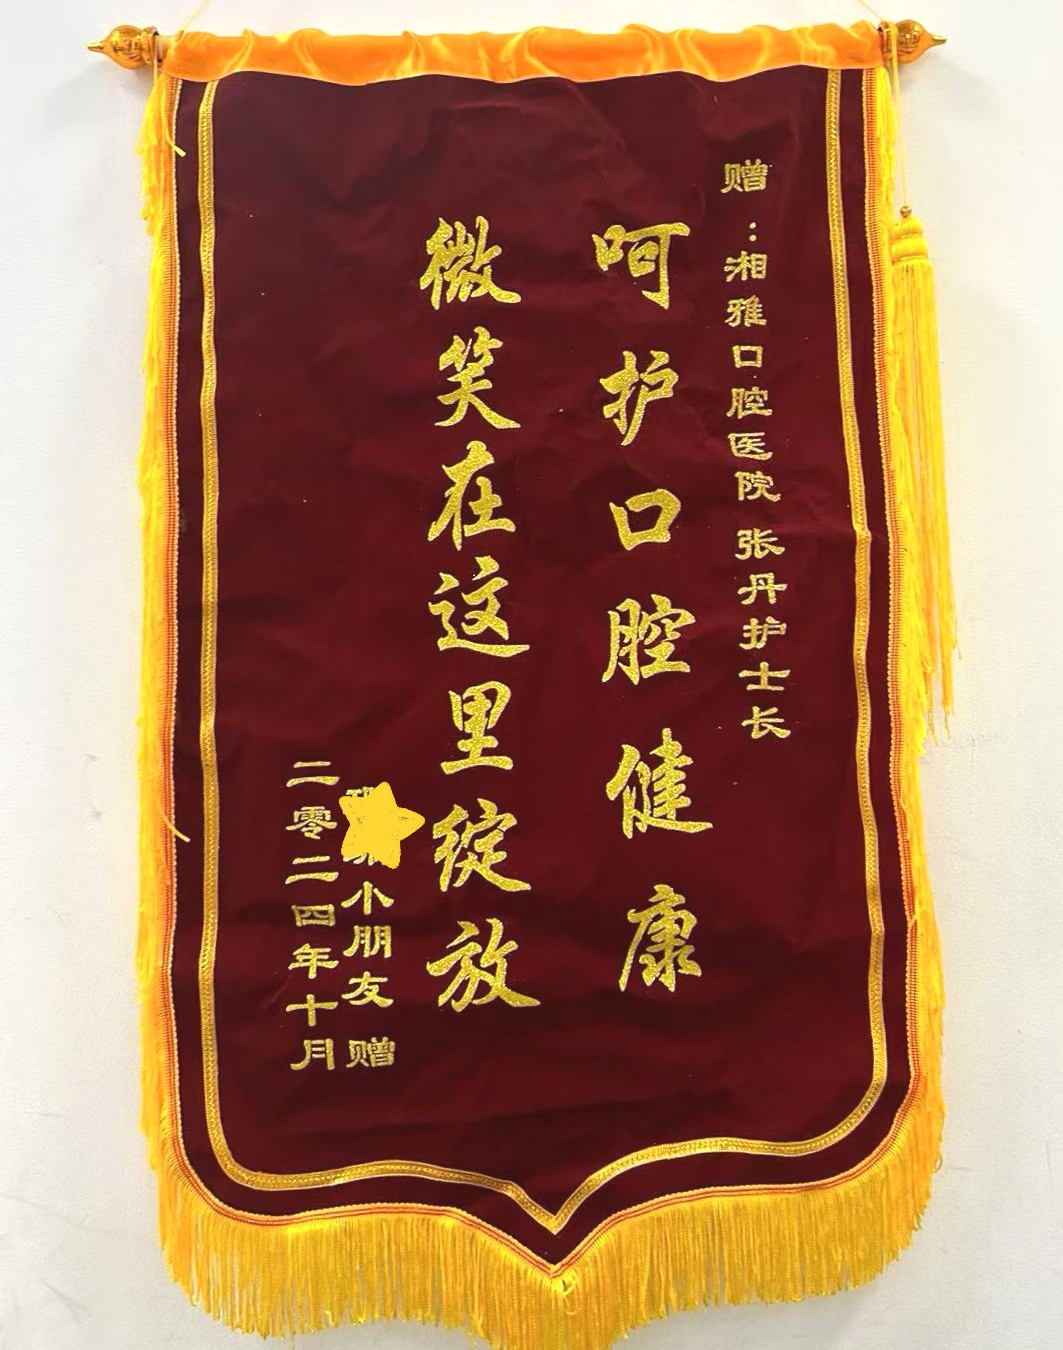 赠：湘雅口腔医院 张丹护士长
呵护口腔健康
微笑在这里绽放
小朋友 赠
二零二四年十月